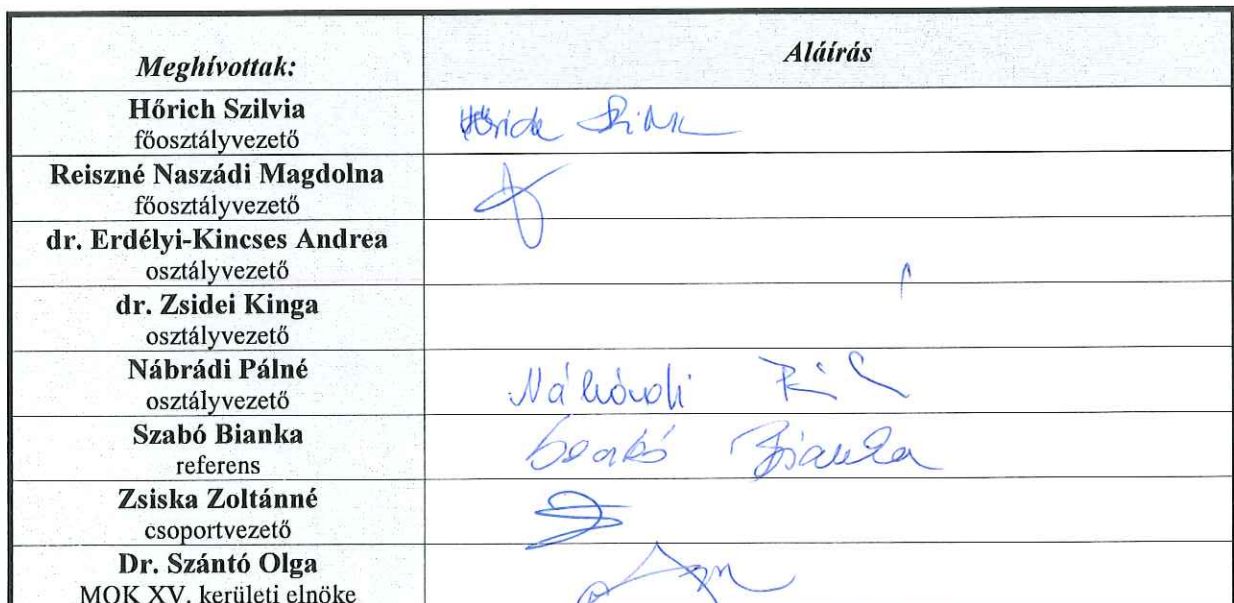 Meghívottak: Aláírás
Hőrich Szilvia
főosztályvezető
Hőrich Szilvia
Reiszné Naszádi Magdolna
főosztályvezető
dr. Erdélyi-Kincses Andrea
osztályvezető
dr. Zsidei Kinga
osztályvezető
Nábrádi Pálné
osztályvezető
Nábrádi Pálné
Szabó Bianka
referens
Szabó Bianka
Zsiska Zoltánné
csoportvezető
Dr. Szántó Olga
MOK XV. kerületi elnöke